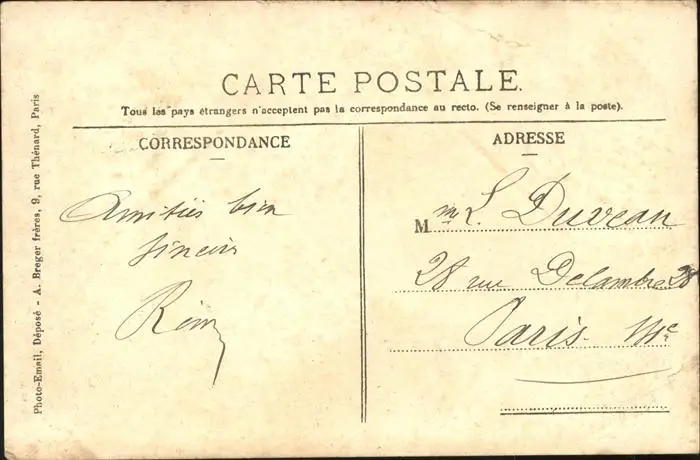 CARTE POSTALE.
Tous les pays étrangers n'acceptent pas la correspondance au recto. (Se renseigner à la poste).
CORRESPONDANCE
Amitiés bien
sincères
Rémy
ADRESSE
M me L. Duveau
28 rue Delambre 28
Paris.
Photo-Email, Déposé - A. Breger frères, 9, rue Thénard, Paris